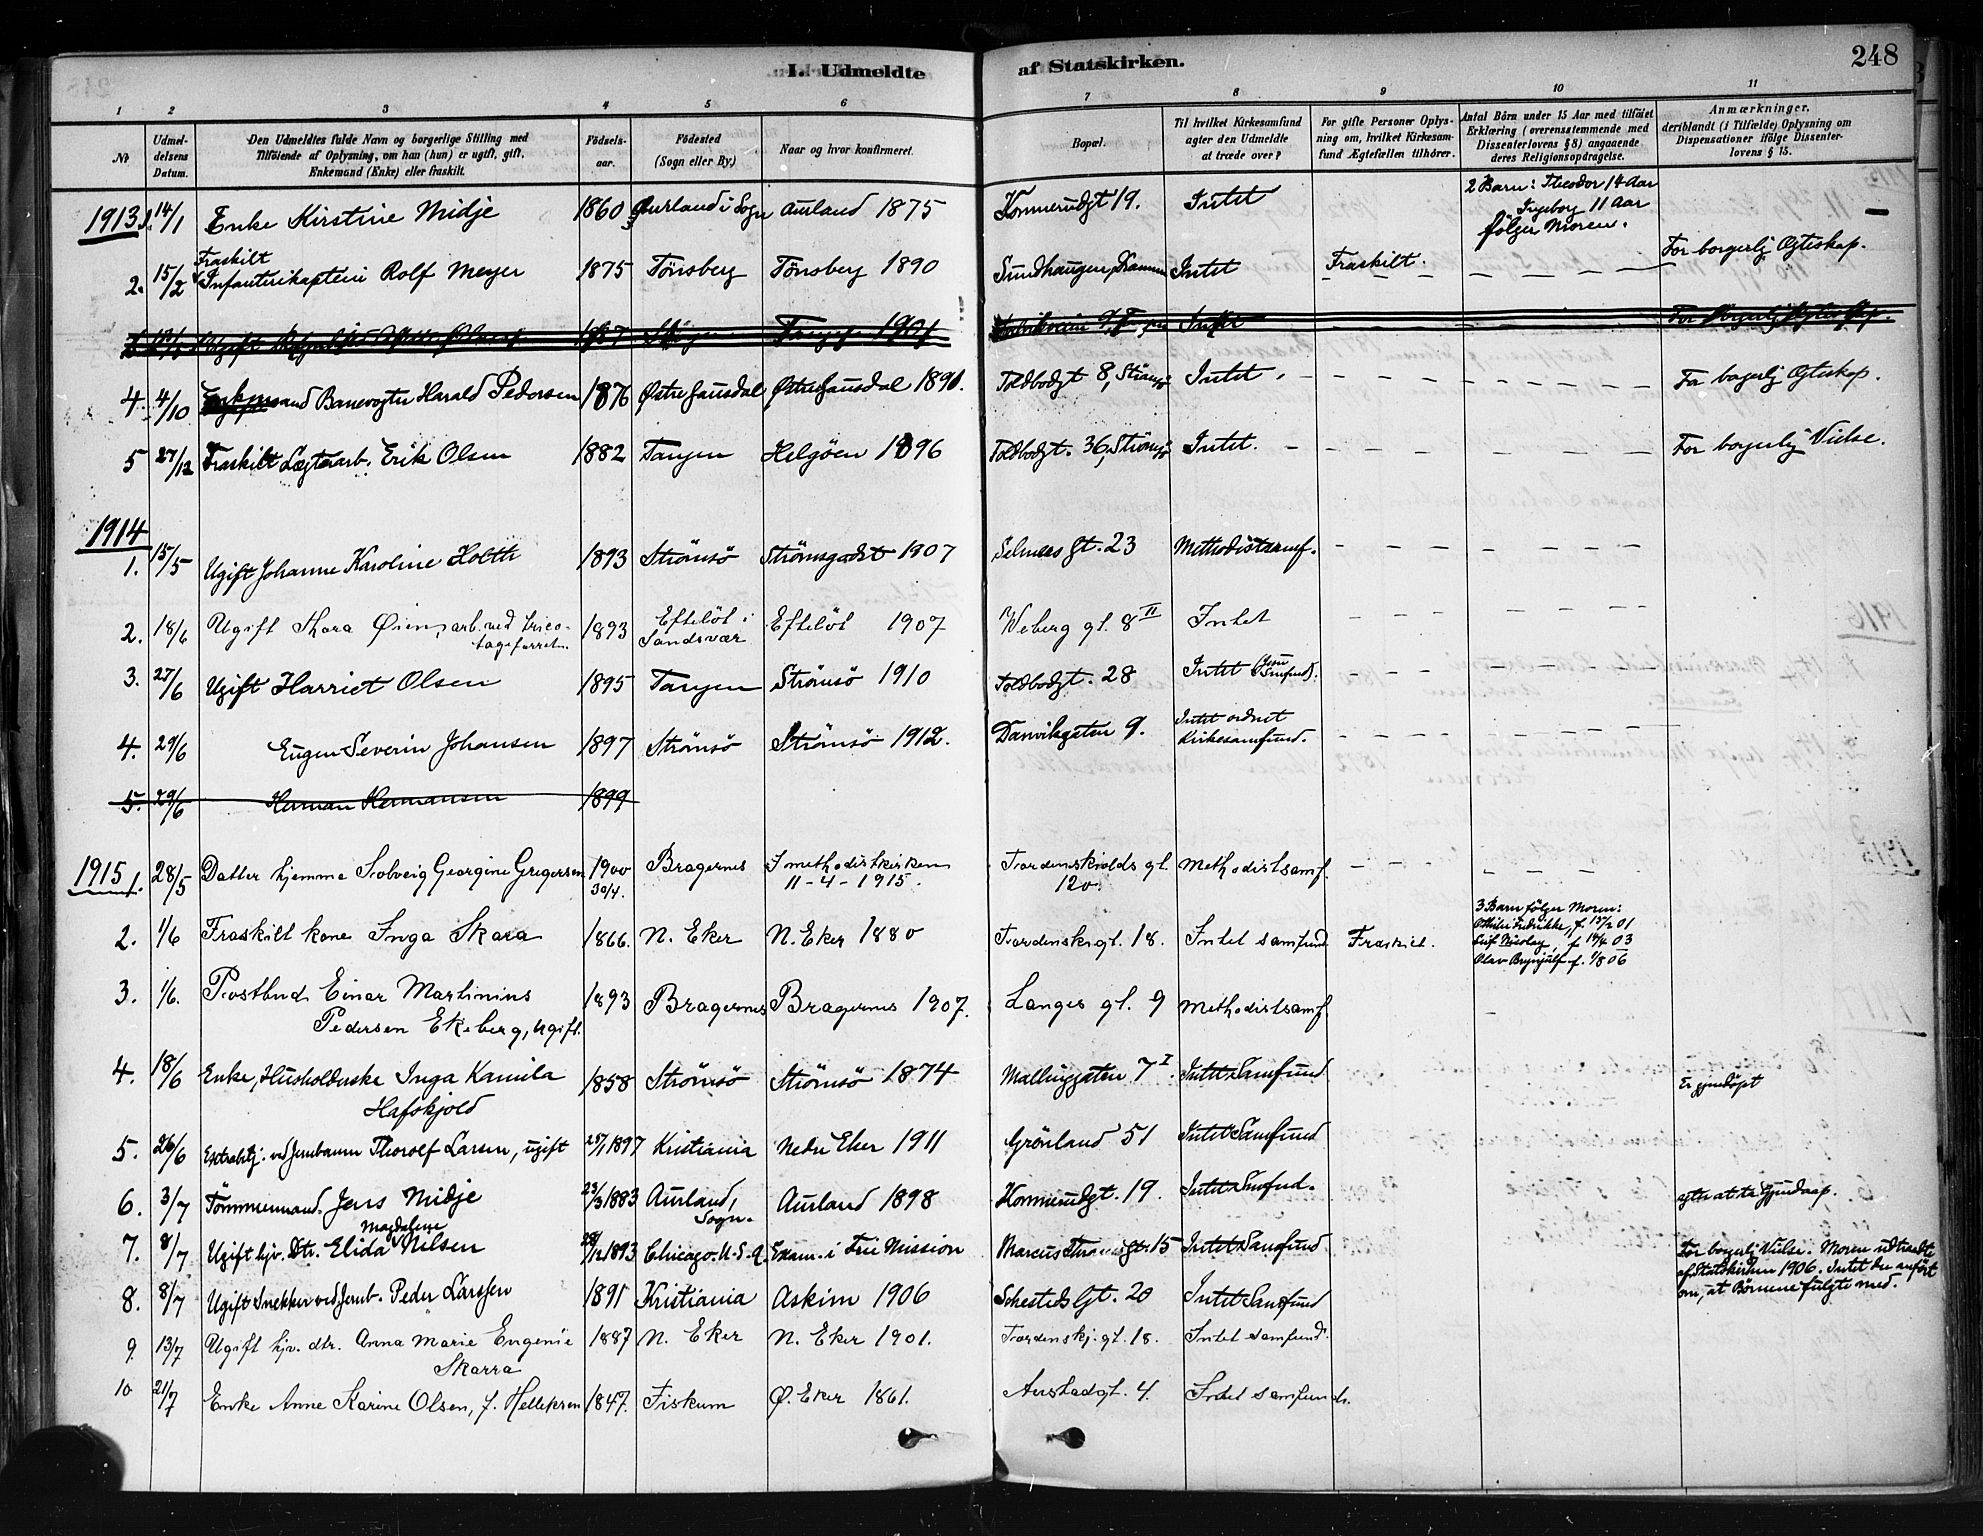 248
I. Udmeldte af Statskirken.
1 2 3 4 5 6 7 8 9 10 11
№
Udmel-
delsens
Datum.
Den Udmeldtes fulde Navn og borgerlige Stilling med
Tilföiende af Oplysning, om han (hun) er ugift, gift,
Enkemand (Enke) eller fraskilt.
Födsels-
aar.
Födested
(Sogn eller By.)
Naar og hvor konfirmeret.
Bopæl.
Til hvilket Kirkesamfund
agter den Udmeldte
at træde over?
For gifte Personer Oplys-
ning om, hvilket Kirkesam-
fund Ægtefællen tilhörer.
Antal Börn under 15 Aar med tilföiet
Erklæring (overensstemmende med
Dissenterlovens § 8) angaaende
deres Religionsopdragelse.
Anmærkninger,
deriblandt (i Tilfælde) Oplysning om
Dispensationer ifölge Dissenter-
lovens § 15.
1913 1. 14/1 Enke Kirstine Midje 1860 Aurland i Sogn Aurland 1875 Konnerudgt 19. Intet 2 Barn: Theodor 14 Aar
Ingeborg 11 Aar
følger Moren.
2. 15/2 Fraskilt
Infanterikaptein Rolf Meyer 1875 Tönsberg Tönsberg 1890 Sundhaugen, Intet Fraskilt. For borgerlig Ægteskap.
Ugift 1887 1901 Intet For borgerlig Ægteskap.
4 4/10 Enkemand Banevogter Harald Pedersen 1876 Østre Gausdal Østre Gausdal 1891. Toldbodgt 8, Strömsö Intet For borgerlig Ægteskap.
5 27/12 Fraskilt Erik Olsen 1882 Tangen Helgöen 1896 Toldbodgt. 36, Strömsö Intet. For borgerlig Vielse.
1914
1. 15/5 Ugift Johanne Karoline Holth 1893 Strömsö Strömsgodset 1907 Selmers gt. 23 Methodistsamf.
2. 18/6 Ugift Thora Øien, arb. ved trico-
tageforretn. 1893 Efteløt i
Sandsvær Efteløt 1907 Weberg gt. 8 II Intet
3. 27/6 Ugift Harriet Olsen 1895 Tangen Strömsö 1910 Toldbodgt. 28 Intet (Jesu
Samfund).
4. 29/6 Eugen Severin Johansen 1897 Strömsö Strömsö 1912. Danvikgaten 9. Intet ordnet
Kirkesamfund.
5. 29/6 Herman Hermansen 1899
1915 1. 28/5 Datter hjemme Solveig Georgine Gregersen 1900
30/4. Bragernes I methodistkirken
11-4-1915. Tordenskiolds gt.
120. Methodistsamf.
2. 1/6 Fraskilt kone Inga Skara 1866. N. Eker N. Eker 1880 Tordenskj.gt. 18. Intet samfund Fraskilt. 3 Barn følger Moren:
Othilie Fredrikke, f. 15/2 01
Leif Nicolay, f. 14/4 03
Olav Brynjulf f. 1/8 06
3. 1/6. Postbud Einar Martinius
Pedersen Ekeberg, ugift. 1893 Bragernes Bragernes 1907. Langes gt. 9 Methodistsamf.
4. 18/6 Enke, Husholderske Inga Kamila
Hafskjold 1858 Strömsö Strömsö 1874 Mallinggaten 7 I. Intet Samfund Er gjendöpt
5. 26/6 ved Jernbanen Thorolf Larsen, ugift 25/1 1897 Kristiania Nedre Eker 1911 Grönland 51 Intet Samfund
6. 3/7 Tömmermand Jens Midje 23/3 1883 Aurland,
Sogn. Aurland 1898 Konnerudgt. 19. Intet Samfund. agter at ta Gjendaap.
7. 8/7 Ugift hjv. Dtr. Elida Magdalene Nilsen 28/12 1893 Chicago U.S.A. Exam. i Frie Mission Marcus Thranesgt. 15 Intet Samfund For borgerlig Vielse. Moren udtraadte
af Statskirken 1906. Intet der anfört
om, at Börnene fulgte med.
8. 8/7 Ugift Snekker ved Jernb. Peder Larssen 1891 Kristiania Askim 1906 Schesteds Gt. 20 Intet Samfund
9. 13/7 Ugift hjv. dtr. Anna Marie Eugenie
Skarra 1887 N. Eker N. Eker 1901. Tordenskj. gt. 18. Intet samfund.
10 21/7 Enke Anne Karine Olsen, f. Helleksen 1847. Fiskum Ø. Eker 1861. Austadgt. 4. Intet samfund.